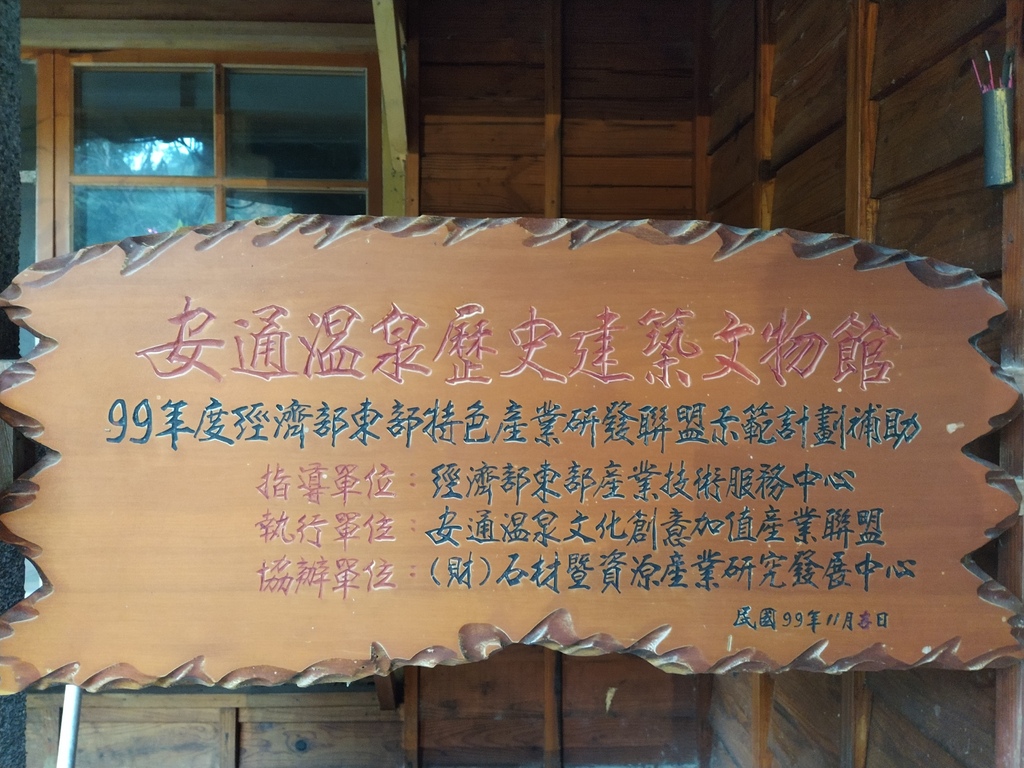 安通溫泉歷史建築文物館
99年度經濟部東部特色產業研發聯盟示範計劃補助
指導單位：經濟部東部產業技術服務中心
執行單位：安通溫泉文化創意加值產業聯盟
協辦單位：（財）石材暨資源產業研究發展中心
民國99年11月 日